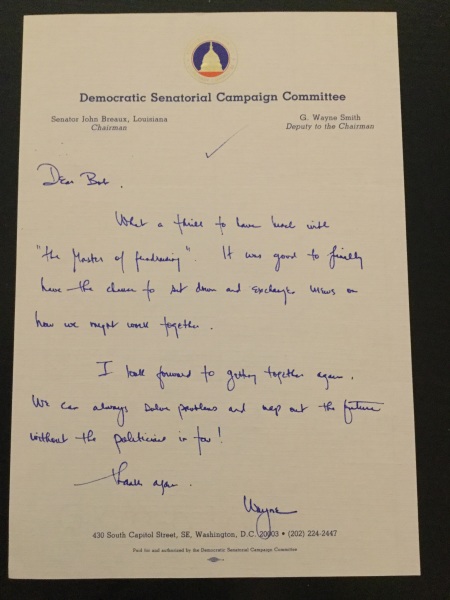 Democratic Senatorial Campaign Committee
Senator John Breaux, Louisiana
Chairman
G. Wayne Smith
Deputy to the Chairman
Dear Bob,
What a thrill to have lunch with
"the Master of fundraising". It was good to finally
have the chance to sit down and exchange views on
how we might work together.
I look forward to getting together again.
We can always solve problems and map out the future
without the politicians in tow!
Thanks again.
Wayne
430 South Capitol Street, SE, Washington, D.C. 20003 • (202) 224-2447
Paid for and authorized by the Democratic Senatorial Campaign Committee